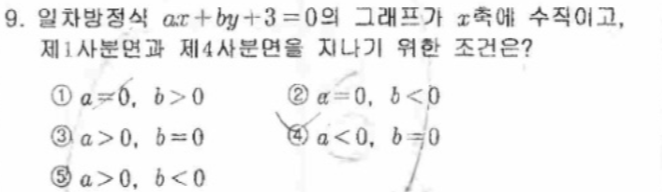 9. 일차방정식 ax+by+3=0의 그래프가 x축에 수직이고,
제1사분면과 제4사분면을 지나기 위한 조건은?
① a=0, b>0 ② a=0, b<0
③ a>0, b=0 ④ a<0, b=0
⑤ a>0, b<0